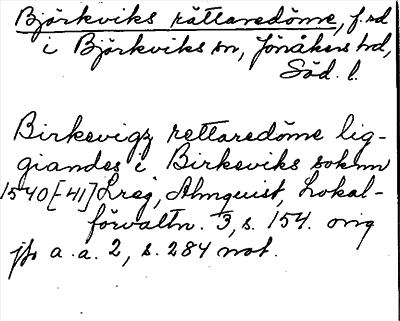 Björkviks rättaredöme, f.rd
i Björkviks sn, Jönåkers hd,
Söd. l.
Birkevigz rettaredöme lig-
giandes i Birkeviks soknn
1540[41] Lreg, Almquist, Lokal-
förvaltn. 3, s. 154. orig
jfr a.a. 2, s. 284 not.